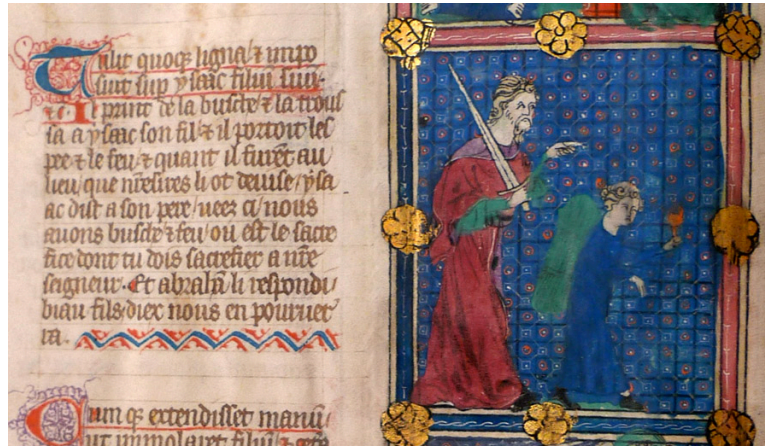 Tulit quoq; ligna ⁊ impo
suit sup ysaac filiū suū.
Il print de la busche ⁊ la trous
sa a ysaac son fil ⁊ il portoit les
pee ⁊ le feu ⁊ quant il furēt au
lieu que nr̄e sires li ot deuise ysa
ac dist a son pere ueez ci nous
auons busche ⁊ feu ou est le sacre
fice dont tu dois sacrefier a nr̄e
seigneur. Et abrahā li respondi
biau fils diex nous en pouruer
ra.
Cum q; extendisset manū
ut immolaret filiū